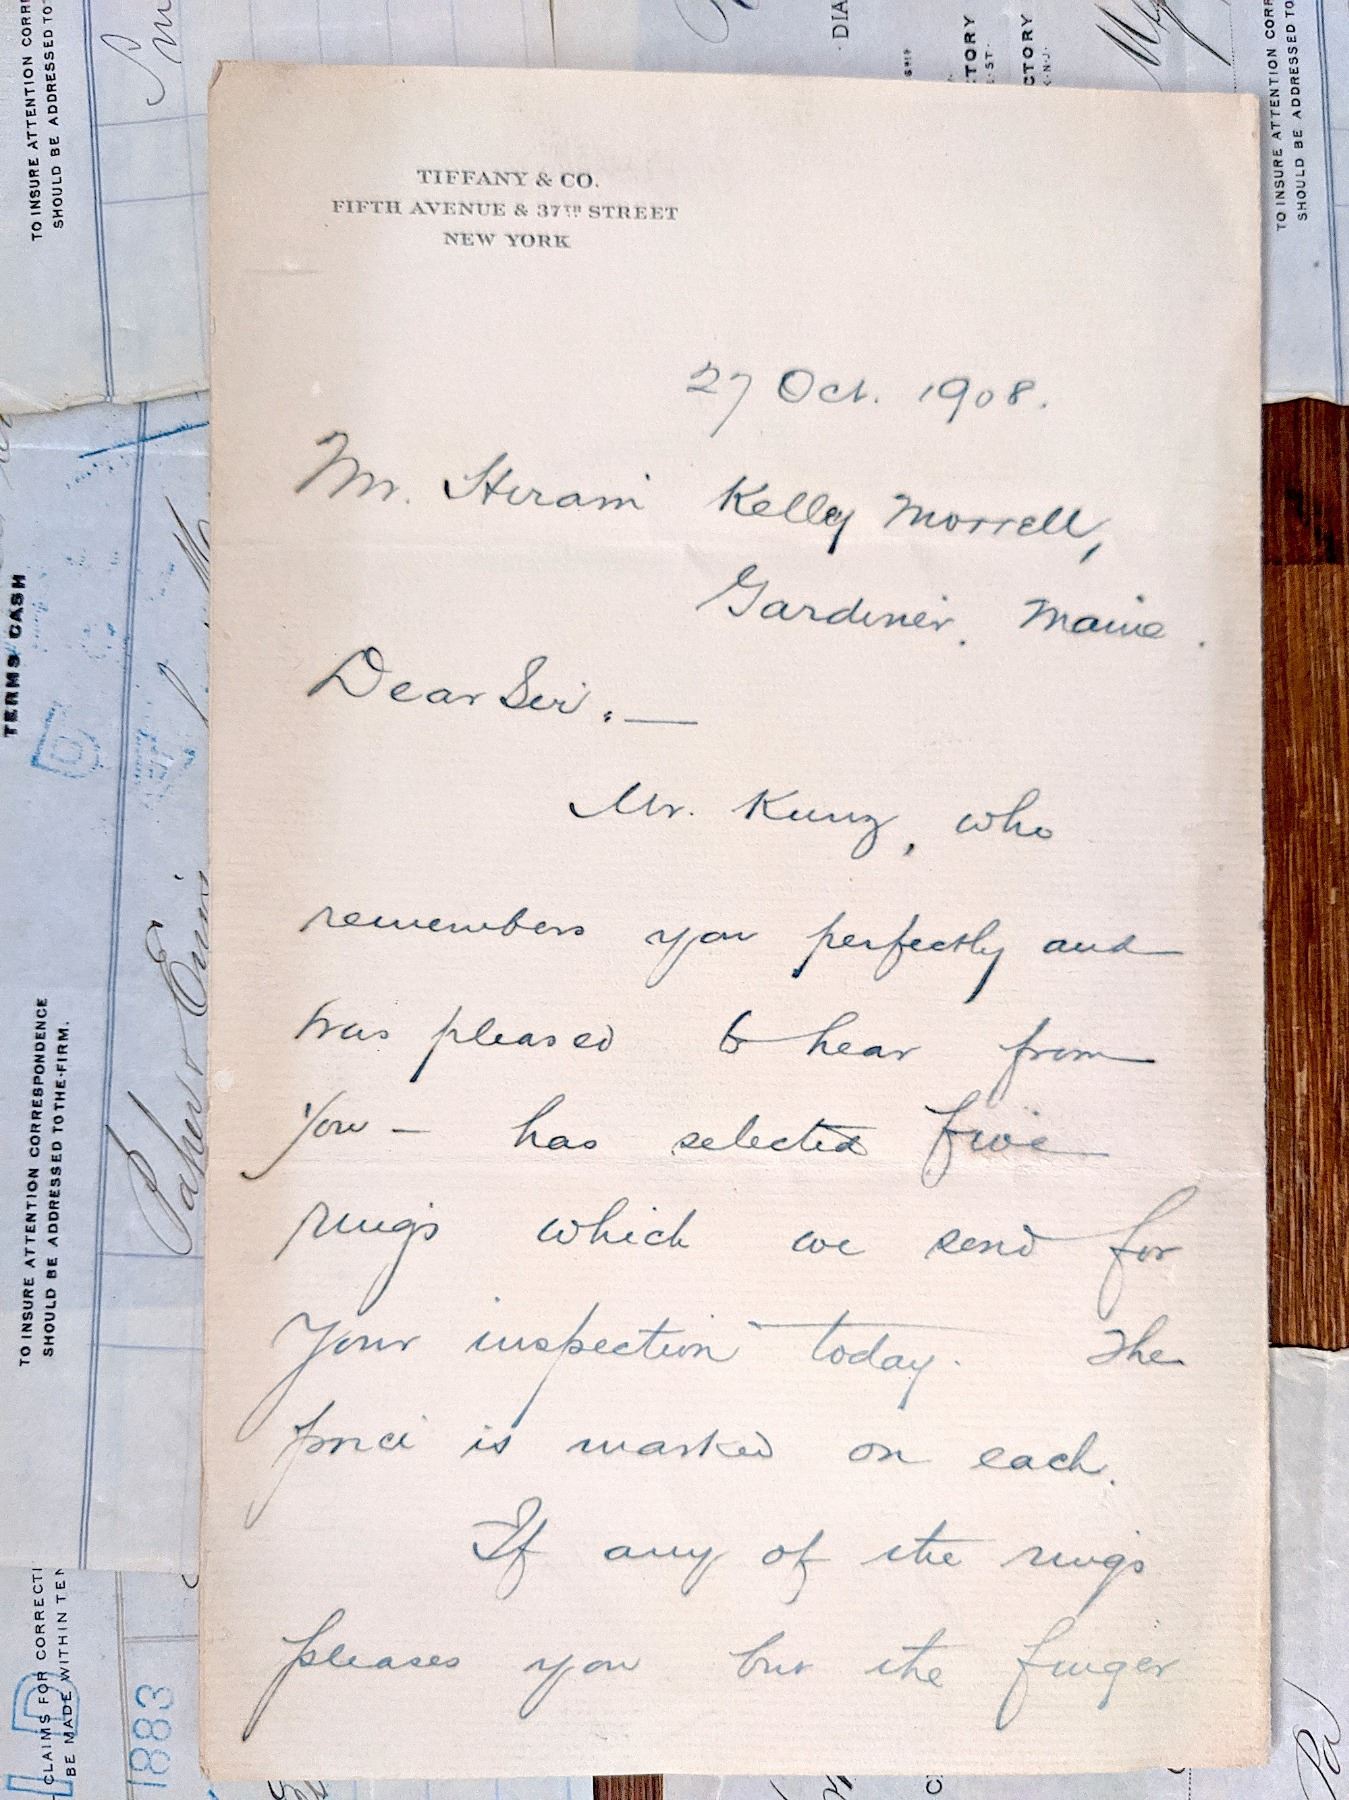 TIFFANY & CO.
FIFTH AVENUE & 37TH STREET
NEW YORK
27 Oct. 1908.
Mr. Hiram Kelly Morrell,
Gardiner. Maine.
Dear Sir:—
Mr. Kunz, who
remembers you perfectly and
was pleased to hear from
you — has selected five
rings which we send for
your inspection today. The
price is marked on each.
If any of the rings
pleases you but the finger
TO INSURE ATTENTION CORR
SHOULD BE ADDRESSED TO
TERMS CASH
TO INSURE ATTENTION CORRESPONDENCE
SHOULD BE ADDRESSED TO THE FIRM.
CLAIMS FOR CORRECTI
BE MADE WITHIN TEN
1883
DIA
CTORY
ST.
CTORY
N.J.
TO INSURE ATTENTION CORR
SHOULD BE ADDRESSED TO